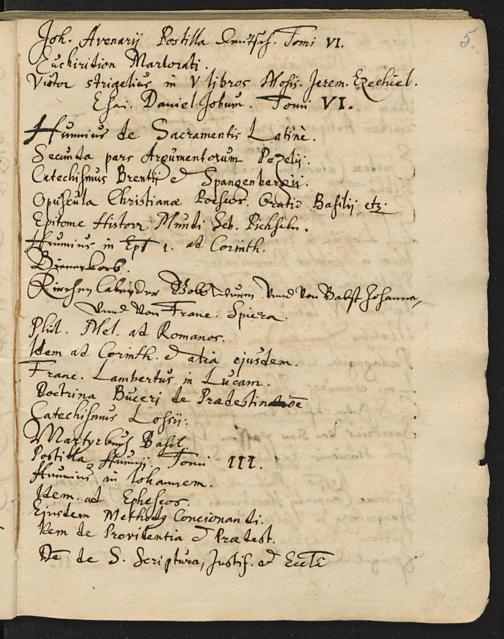 5.
Joh. Avenarij Postilla deutsch. Tomi VI.
Enchiridion Marlorati.
Victor Strigelius in V libros Mosis. Jerem. Ezechiel.
Esai. Daniel Jobum. Tomi VI.
Hunnius de Sacramentis Latinè.
Secunda pars Argumentorum Pezelij.
Catechismus Brentii et Spangenbergij.
Opuscula Christianae Poeseos. Oratio Basilij etz.
Epitome Histor. Mundi Seb.
Hunnius in Epl 1. ad Corinth.
Bienenkorb.
vnnd von Babst Johanna,
vnnd von Franc. Spiera.
Phil. Mel. ad Romanos.
Idem ad Corinth. et alia ejusdem.
Franc. Lambertus in Lucam.
Doctrina Buceri de Praedestinatioe
Catechismus Lossij.
Martyrbuch Basil.
Postilla Hunnij. Tomi III.
Hunnius in Johannem.
Idem. ad Ephesios.
Ejusdem Methodus Concionandi.
Idem de Providentia et Praedest.
de S. Scriptura, Justif. et Eccl